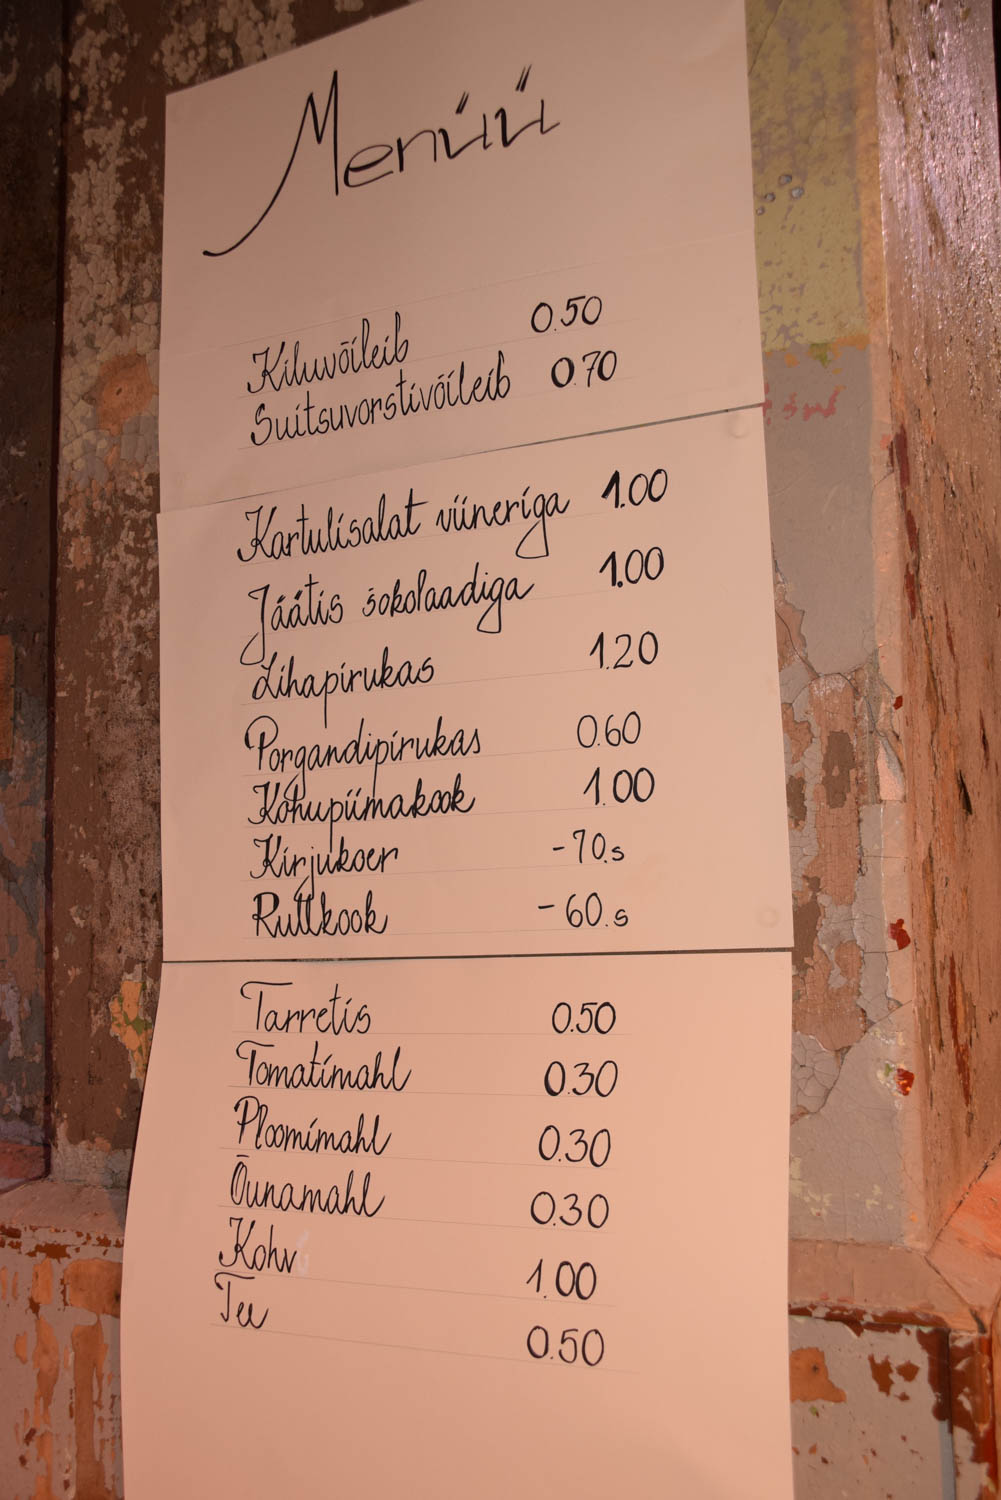 Menüü
Kiluvõileib 0.50
Suitsuvorstivõileib 0.70
Kartulisalat viineriga 1.00
Jäätis šokolaadiga 1.00
Lihapirukas 1.20
Porgandipirukas 0.60
Kohupiimakook 1.00
Kirjukoer -70.s
Rullkook -60.s
Tarretis 0.50
Tomatimahl 0.30
Ploomimahl 0.30
Õunamahl 0.30
Kohv 1.00
Tee 0.50